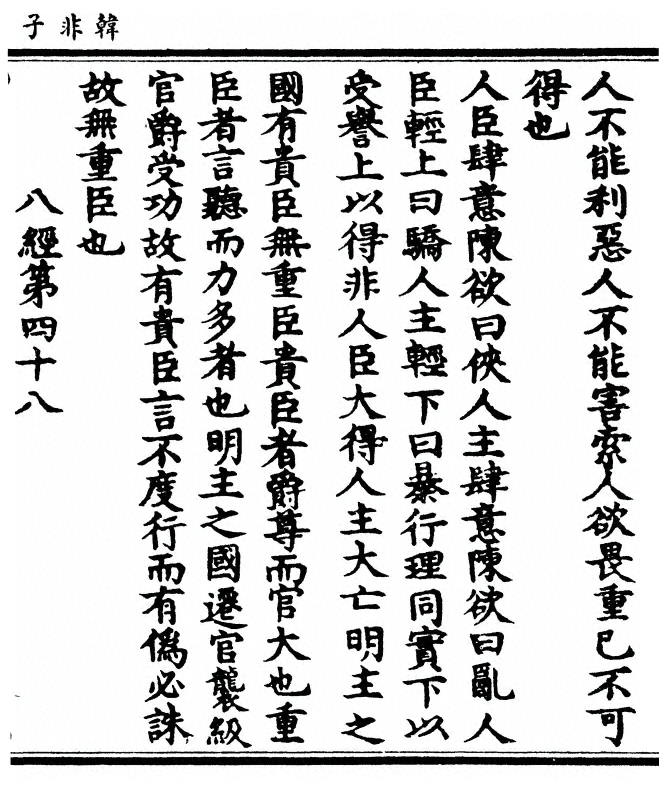 韓非子
人不能利惡人不能害索人欲畏重己不可
得也
人臣肆意陳欲曰俠人主肆意陳欲曰亂人
臣輕上曰驕人主輕下曰暴行理同實下以
受譽上以得非人臣大得人主大亡明主之
國有貴臣無重臣貴臣者爵尊而官大也重
臣者言聽而力多者也明主之國遷官襲級
官爵受功故有貴臣言不度行而有僞必誅
故無重臣也
八經第四十八